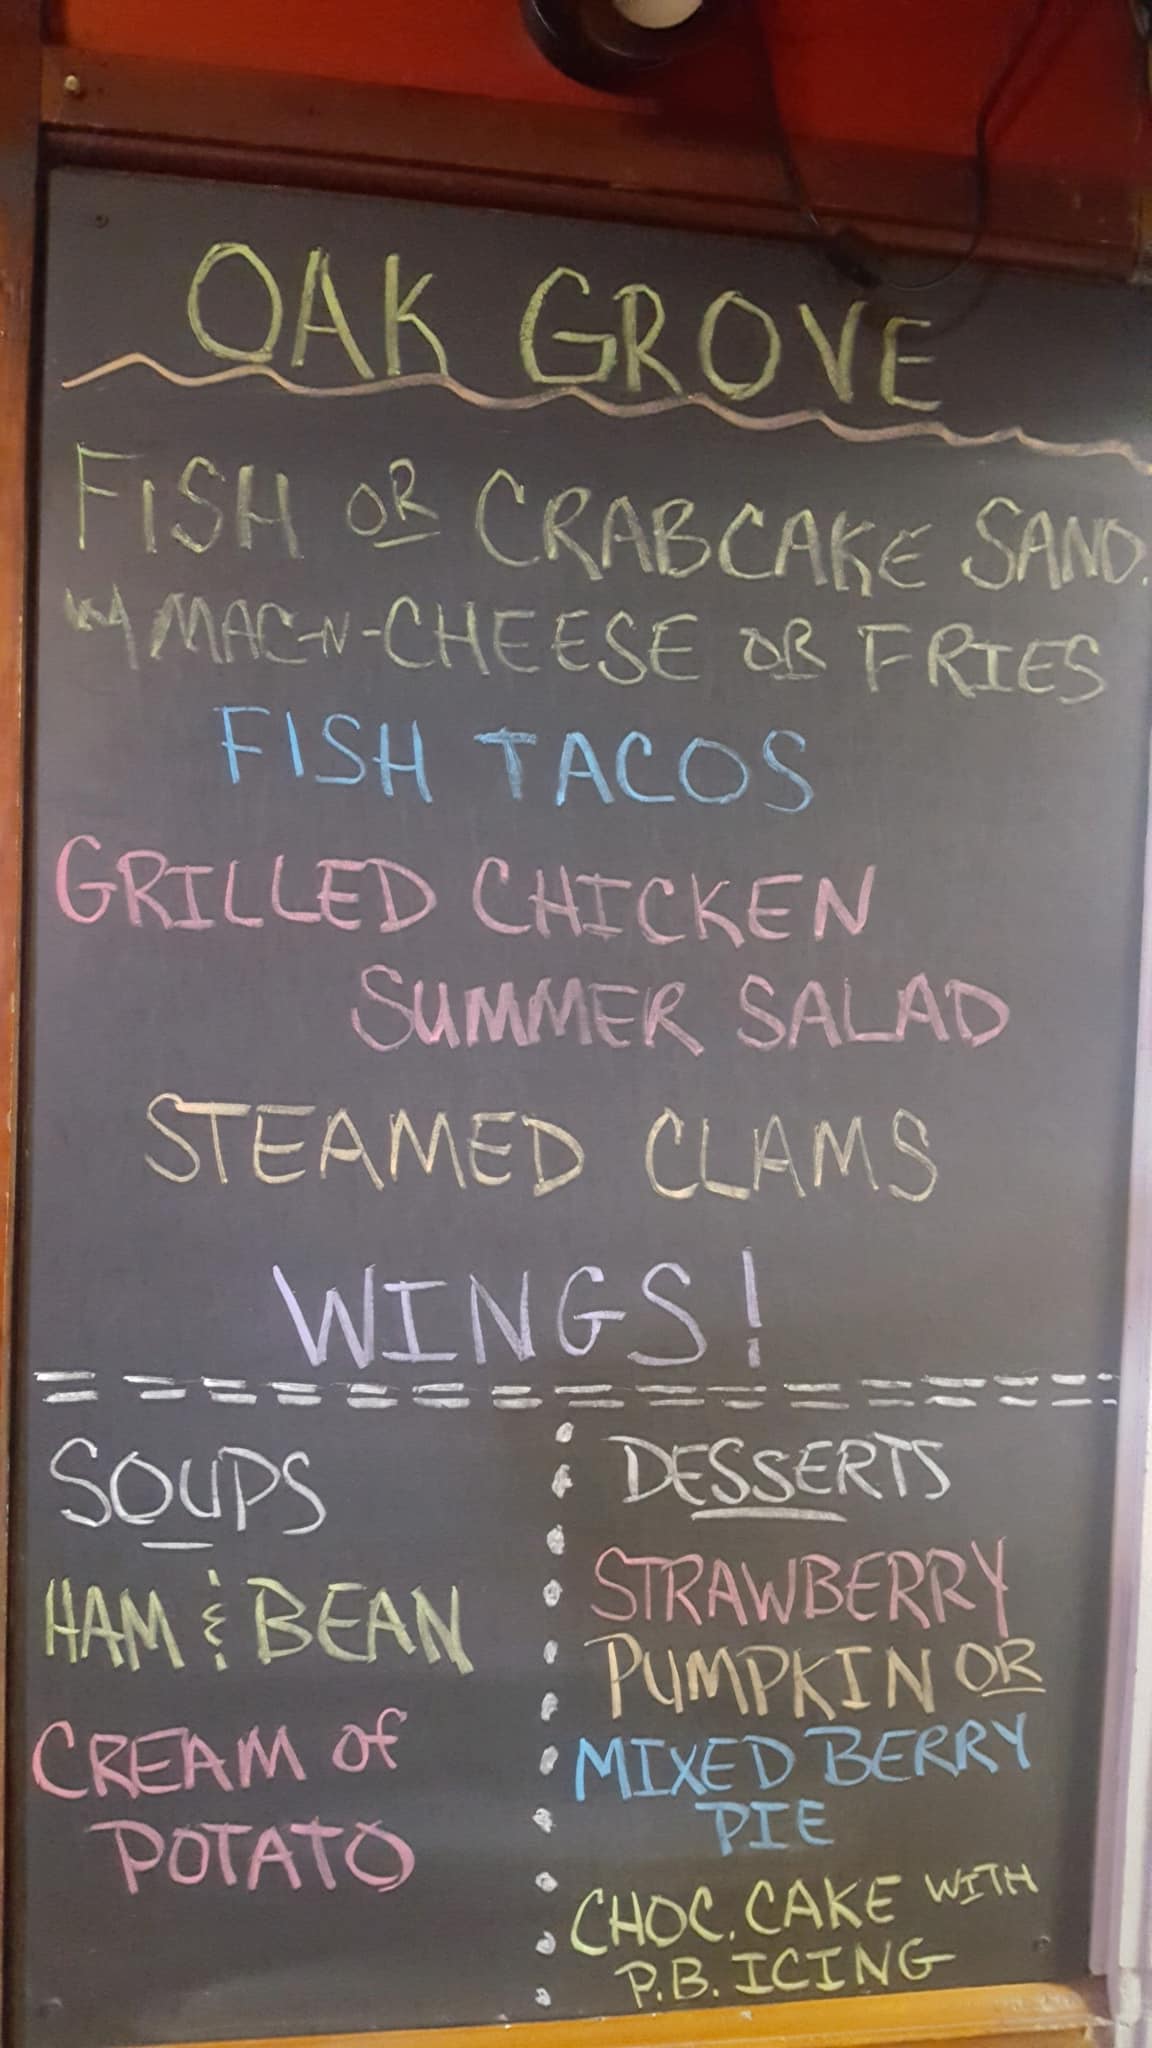 OAK GROVE
FISH OR CRABCAKE SAND.
W/ MAC-N-CHEESE OR FRIES
FISH TACOS
GRILLED CHICKEN
SUMMER SALAD
STEAMED CLAMS
WINGS!
SOUPS
HAM & BEAN
CREAM of
POTATO
DESSERTS
STRAWBERRY
PUMPKIN OR
MIXED BERRY
PIE
CHOC. CAKE WITH
P.B. ICING